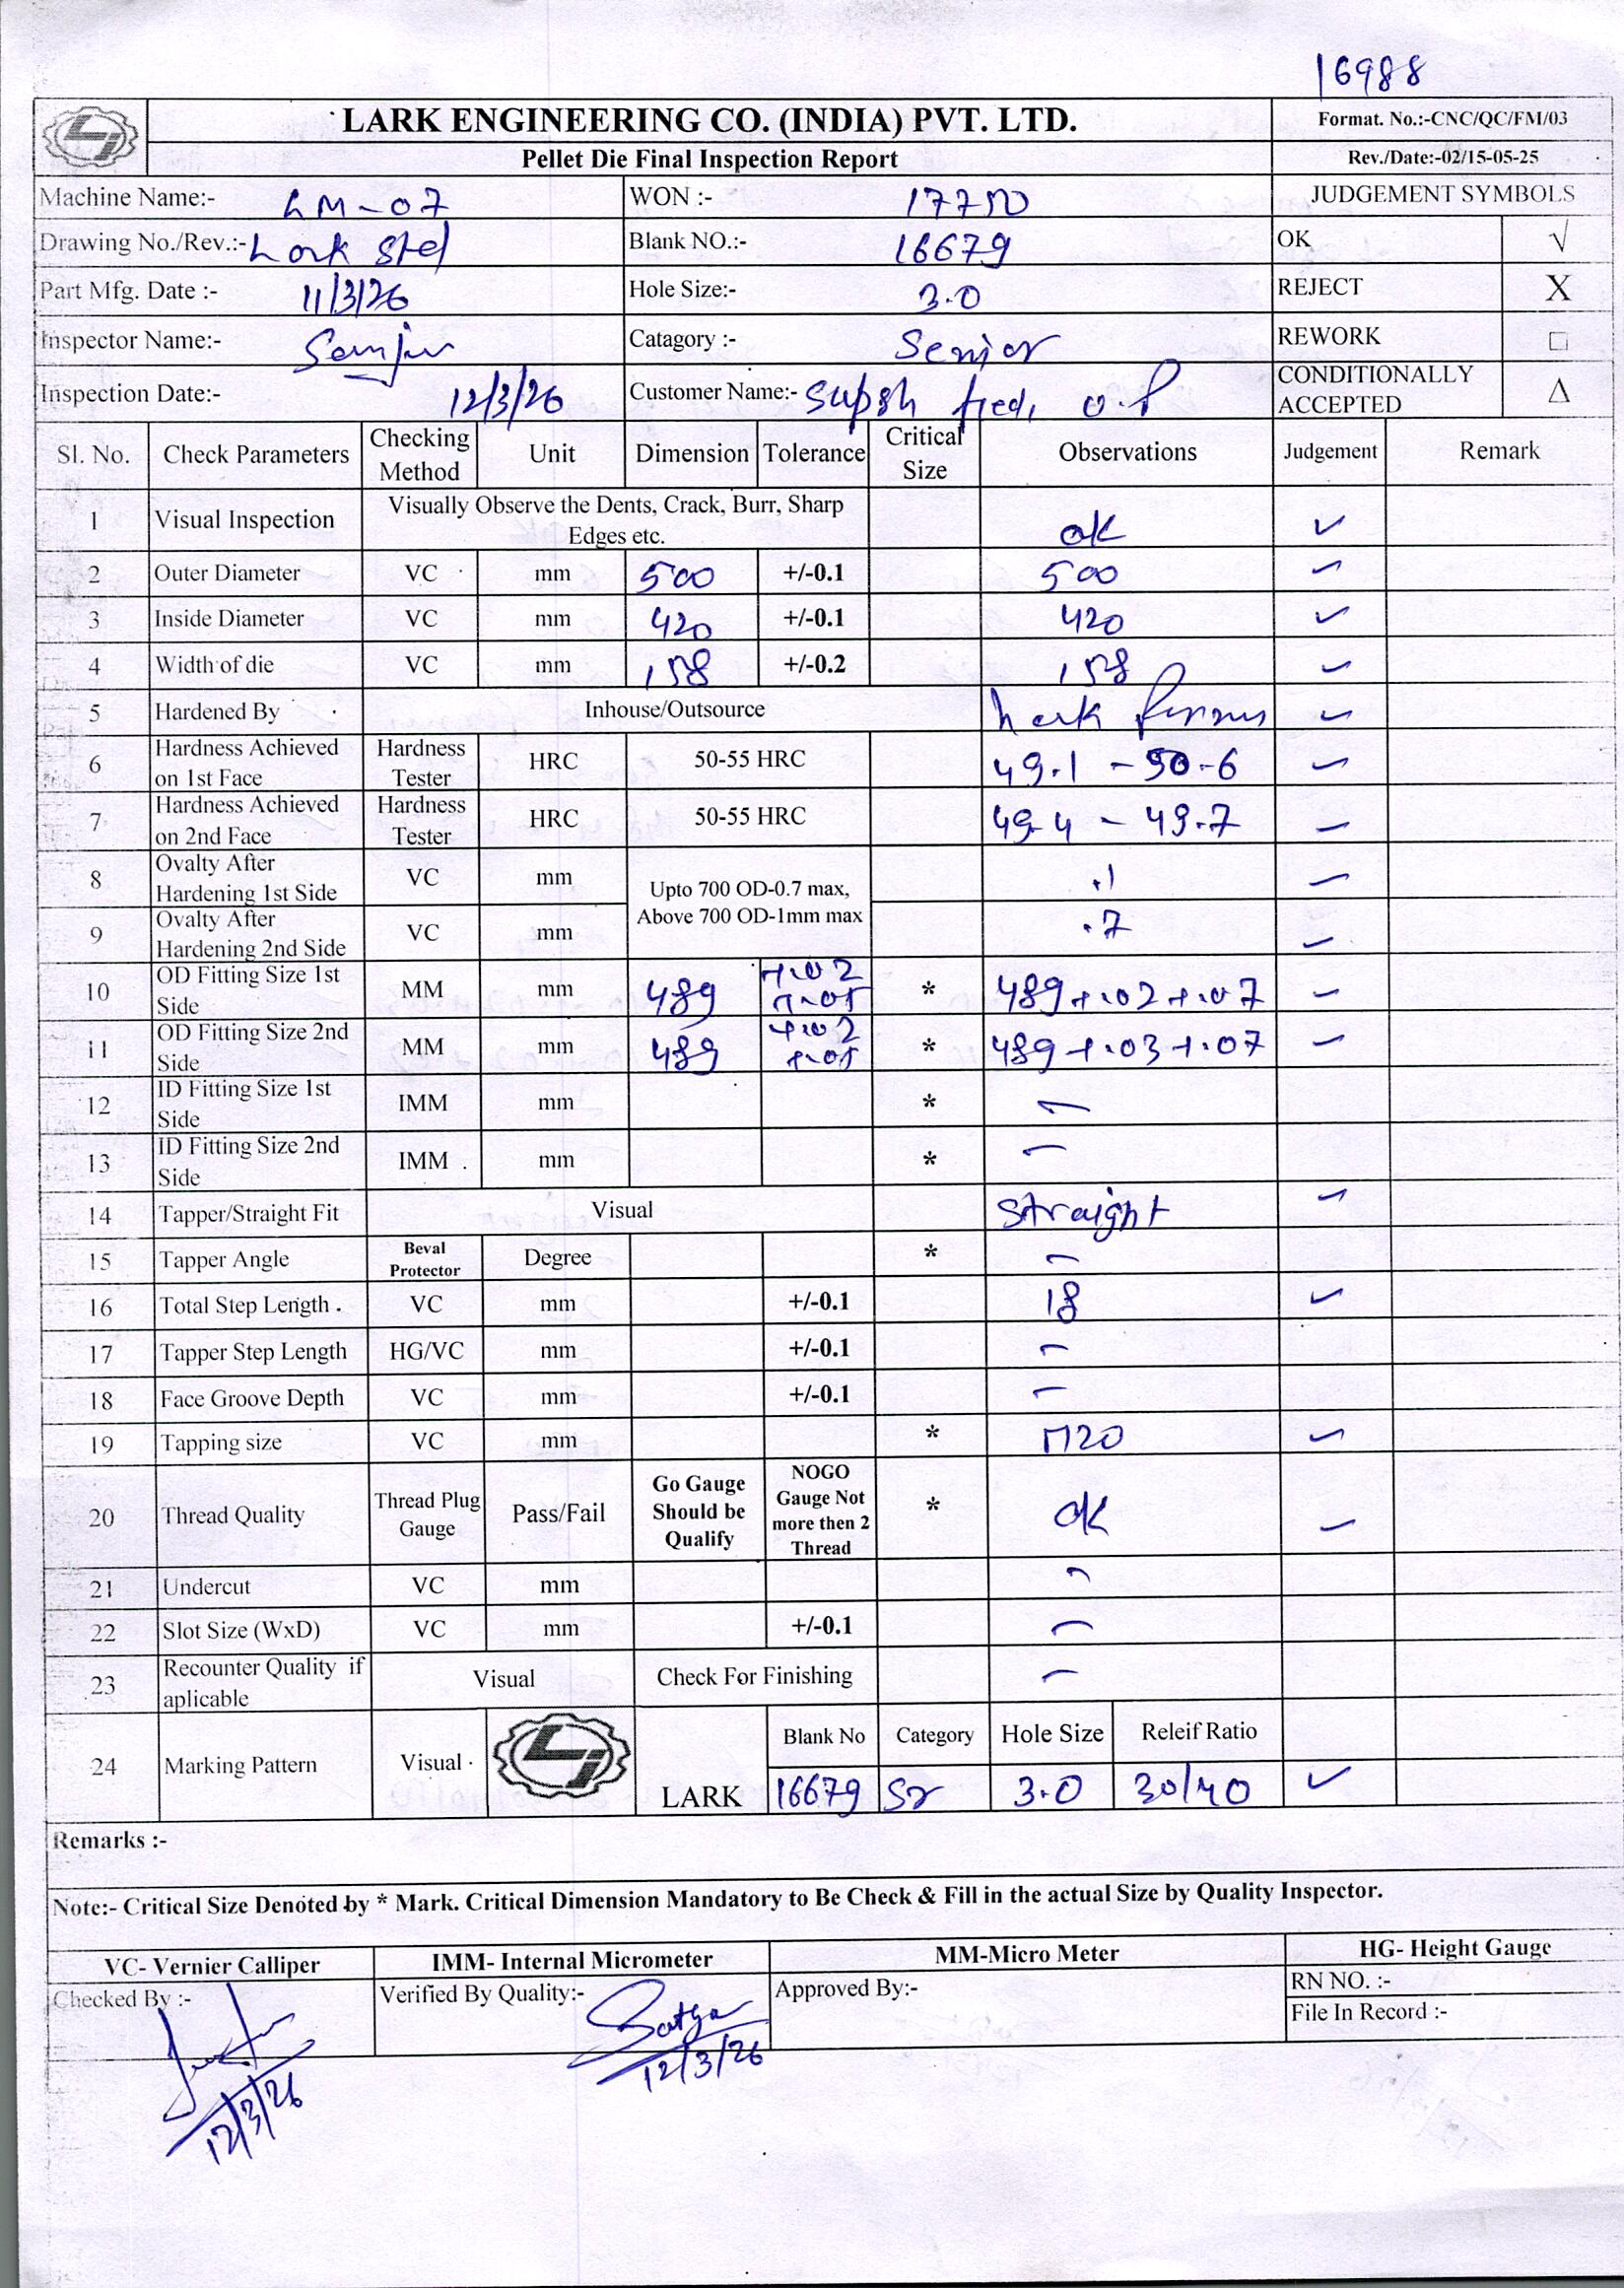 16988
LARK ENGINEERING CO. (INDIA) PVT. LTD.
Format. No.:-CNC/QC/FM/03
Pellet Die Final Inspection Report
Rev./Date:-02/15-05-25
Machine Name:- LM-07 WON :- JUDGEMENT SYMBOLS
Drawing No./Rev.:- Lark Blank NO.:- 16679 OK √
Part Mfg. Date :- 11/3/26 Hole Size:- 3.0 REJECT X
Inspector Name:- Catagory :- Senior REWORK □
Inspection Date:- 12/3/26 Customer Name:- CONDITIONALLY ACCEPTED Δ
Sl. No. Check Parameters Checking Method Unit Dimension Tolerance Critical Size Observations Judgement Remark
1 Visual Inspection Visually Observe the Dents, Crack, Burr, Sharp Edges etc. ok ✓
2 Outer Diameter VC mm 500 +/-0.1 500 ✓
3 Inside Diameter VC mm 420 +/-0.1 420 ✓
4 Width of die VC mm 158 +/-0.2 158 ✓
5 Hardened By Inhouse/Outsource Lark ✓
6 Hardness Achieved on 1st Face Hardness Tester HRC 50-55 HRC 49.1 - 50.6 ✓
7 Hardness Achieved on 2nd Face Hardness Tester HRC 50-55 HRC 49.4 - 49.7 ✓
8 Ovalty After Hardening 1st Side VC mm Upto 700 OD-0.7 max, Above 700 OD-1mm max .1 ✓
9 Ovalty After Hardening 2nd Side VC mm .7 ✓
10 OD Fitting Size 1st Side MM mm 489 +.02 +.05 * 489+.02+.07 ✓
11 OD Fitting Size 2nd Side MM mm 489 +.02 +.05 * 489+.03+.07 ✓
12 ID Fitting Size 1st Side IMM mm * -
13 ID Fitting Size 2nd Side IMM mm * -
14 Tapper/Straight Fit Visual Straight ✓
15 Tapper Angle Beval Protector Degree * -
16 Total Step Length VC mm +/-0.1 18 ✓
17 Tapper Step Length HG/VC mm +/-0.1 -
18 Face Groove Depth VC mm +/-0.1 -
19 Tapping size VC mm * M20 ✓
20 Thread Quality Thread Plug Gauge Pass/Fail Go Gauge Should be Qualify NOGO Gauge Not more then 2 Thread * ok ✓
21 Undercut VC mm -
22 Slot Size (WxD) VC mm +/-0.1 -
23 Recounter Quality if aplicable Visual Check For Finishing -
24 Marking Pattern Visual LARK Blank No Category Hole Size Releif Ratio
16679 Sr 3.0 30/40 ✓
Remarks :-
Note:- Critical Size Denoted by * Mark. Critical Dimension Mandatory to Be Check & Fill in the actual Size by Quality Inspector.
VC- Vernier Calliper IMM- Internal Micrometer MM-Micro Meter HG- Height Gauge
Checked By :- Verified By Quality:- Satya Approved By:- RN NO. :-
File In Record :-
12/3/26
12/3/26